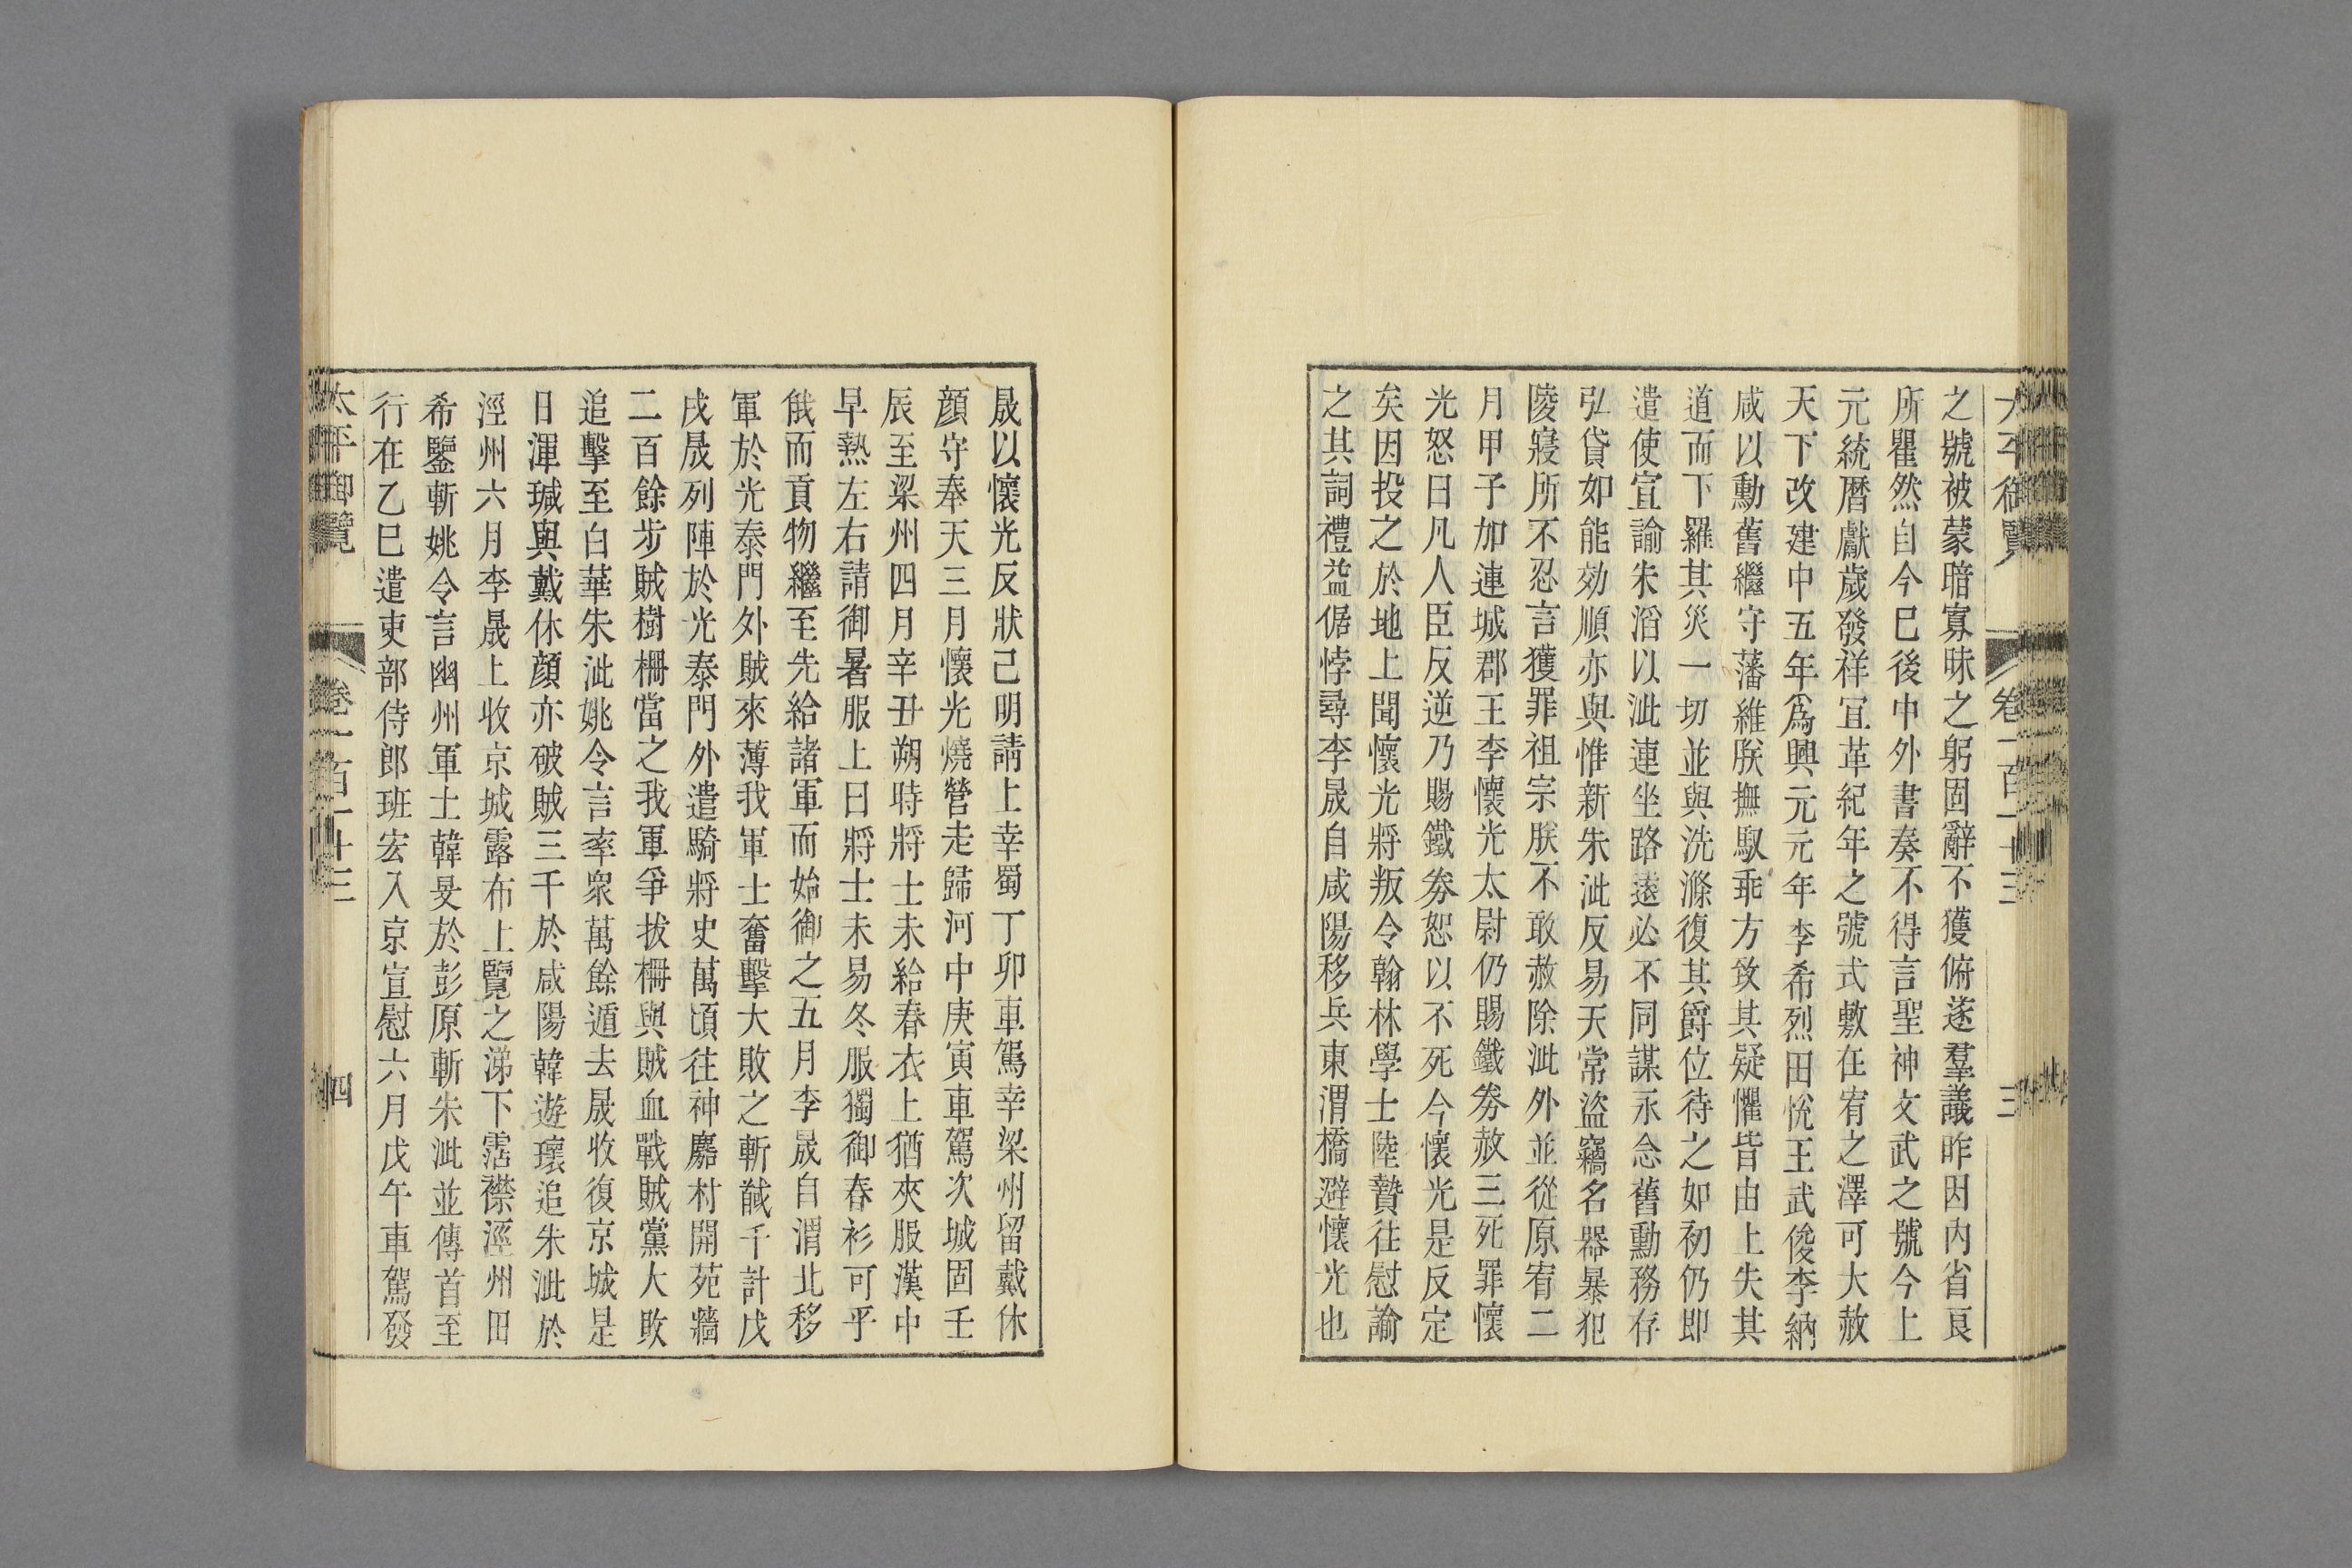 太平御覽 卷一百一十三 三
之號被蒙暗寡昧之躬固辭不獲俯遂羣議昨因內省良
所瞿然自今巳後中外書奏不得言聖神文武之號今上
元統曆獻歲發祥宜革紀年之號式敷在宥之澤可大赦
天下改建中五年爲興元元年李希烈田恱王武俊李納
咸以勳舊繼守藩維朕撫馭乖方致其疑懼皆由上失其
道而下羅其災一切並與洗滌復其爵位待之如初仍即
遣使宣諭朱滔以泚連坐路遠必不同謀永念舊勳務存
弘貸如能効順亦與惟新朱泚反易天常盜竊名器暴犯
陵寢所不忍言獲罪祖宗朕不敢赦除泚外並從原宥二
月甲子加連城郡王李懷光太尉仍賜鐵劵赦三死罪懷
光怒曰凡人臣反逆乃賜鐵劵恕以不死今懷光是反定
矣因投之於地上聞懷光將叛令翰林學士陸贄往慰諭
之其詞禮益倨悖尋李晟自咸陽移兵東渭橋避懷光也
晟以懷光反狀己明請上幸蜀丁卯車駕幸梁州留戴休
顔守奉天三月懷光燒營走歸河中庚寅車駕次城固壬
辰至梁州四月辛丑朔時將士未給春衣上猶夾服漢中
早熱左右請御暑服上曰將士未易冬服獨御春衫可乎
俄而貢物繼至先給諸軍而始御之五月李晟自渭北移
軍於光泰門外賊來薄我軍士奮擊大敗之斬馘千計戊
戌晟列陣於光泰門外遣騎將史萬頃往神麚村開苑牆
二百餘步賊樹柵當之我軍爭拔柵與賊血戰賊黨大敗
追擊至白華朱泚姚令言率衆萬餘遁去晟收復京城是
日渾瑊與戴休顔亦破賊三千於咸陽韓遊瓌追朱泚於
涇州六月李晟上收京城露布上覽之涕下霑襟涇州田
希鑒斬姚令言幽州軍士韓旻於彭原斬朱泚並傳首至
行在乙巳遣吏部侍郎班宏入京宣慰六月戊午車駕發
太平御覽 卷一百一十三 四